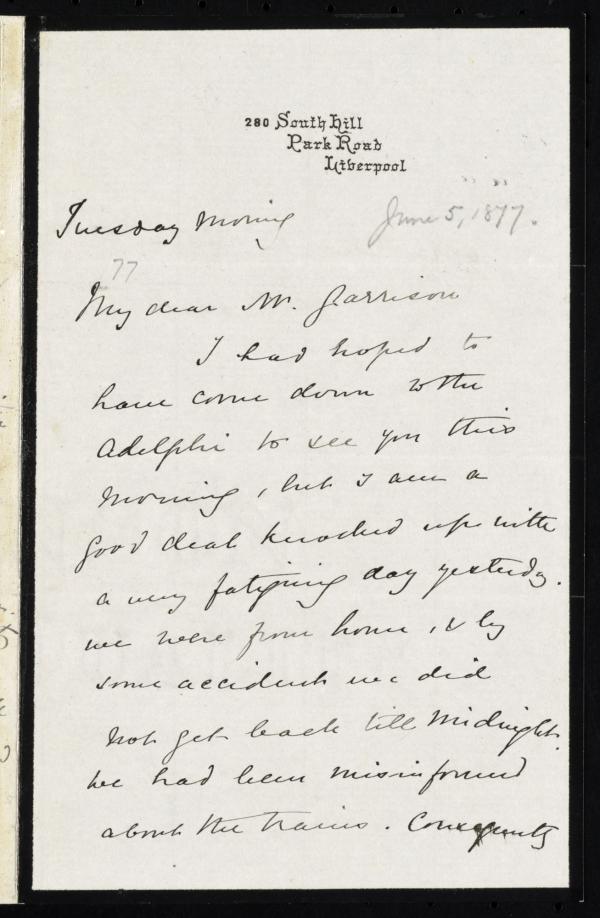 280 South Hill
Park Road
Liverpool
Tuesday Morning
June 5, 1877.
77
My dear Mr. Garrison
I had hoped to
have come down to the
Adelphi to see you this
Morning, but I am a
good deal knocked up with
a very fatiguing day yesterday.
we were from home, & by
some accident we did
not get back till Midnight.
We had been misinformed
about the trains. Consequently